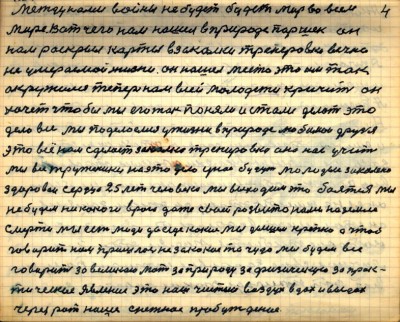 4
Между нами войны не будет будет мир во всем
мире Вот чего нам нашел в природе паршек он
нам раскрыл карты в закалки тренеровке вечно
не умераемой жизни. он нашел место это им так
окружился теперь нам всей молодежи кричит он
хочет чтобы мы его так поняли и стали делать это
дело все мы поделаемся у жизни в природе любимое друзья
это всё нам сделает закалка тренеровка она нас учит
мы ведь труженики на это дело у нас будут молодые закалено
здоровое сердце 25 лет человека мы выходим это боятся мы
не будем никакого врага даже своей развито нами на земле
смерти мы есть люди до седе какие мы дышим крепко о чтоб
говорит нам пришлое не закакое то чудо мы будем все
говорить за великою мать за природу за физическую за прак-
тическое явление это наш чистый воздух вдох и выдох
через рот наше снежное пробуждение